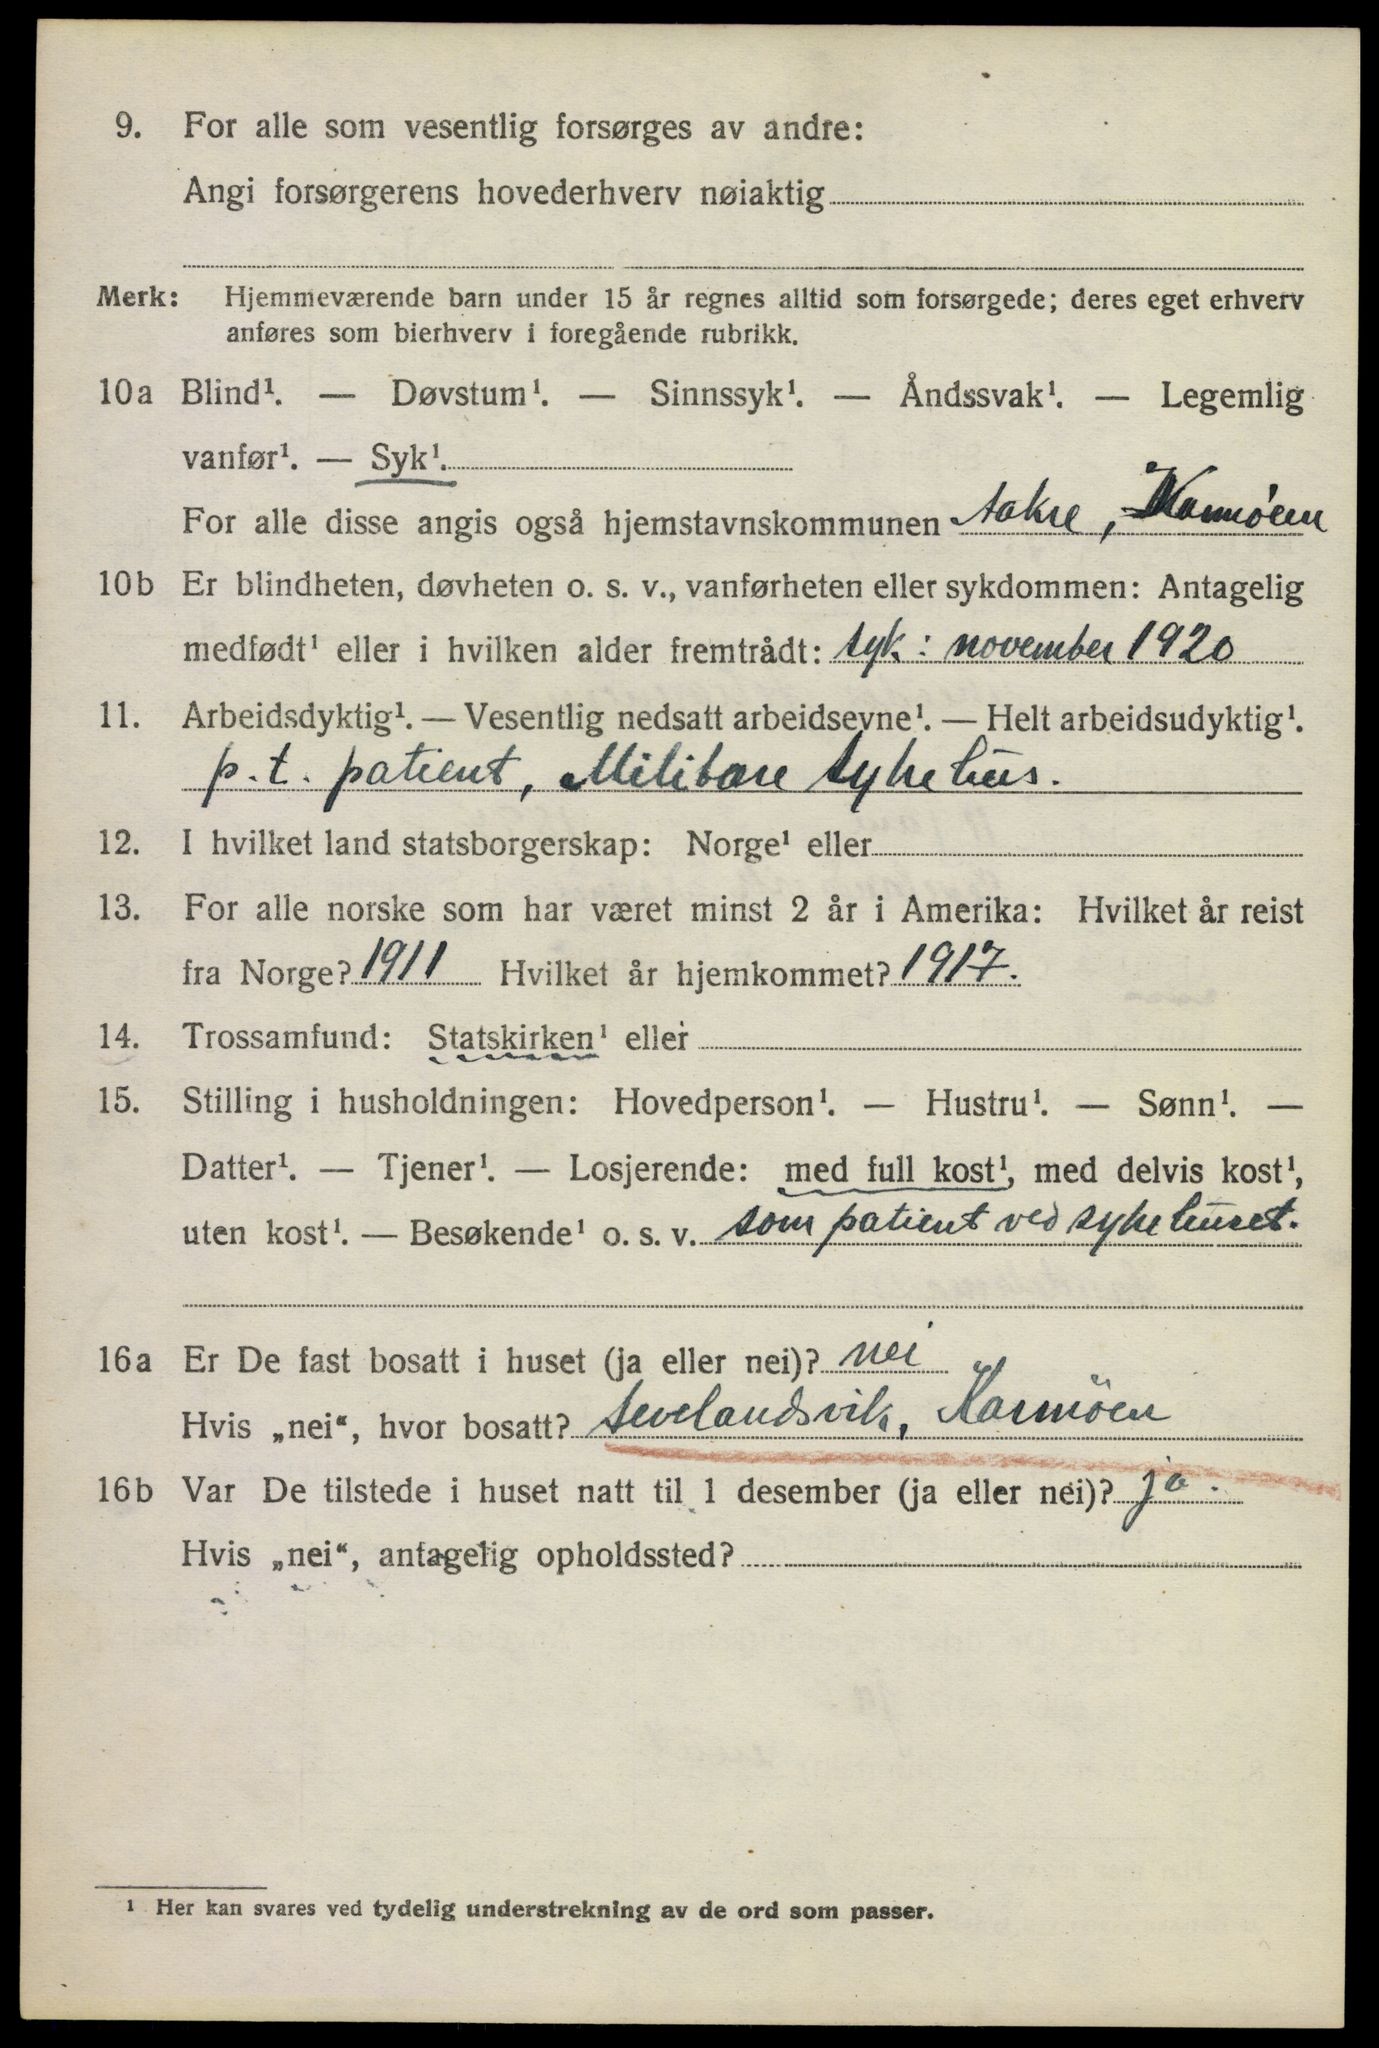 9. For alle som vesentlig forsørges av andre:
Angi forsørgerens hovederhverv nøiaktig
Merk: Hjemmeværende barn under 15 år regnes alltid som forsørgede; deres eget erhverv
anføres som bierhverv i foregående rubrikk.
10a Blind¹. — Døvstum¹. — Sinnssyk¹. — Åndssvak¹. — Legemlig
vanfør¹. — Syk¹.
For alle disse angis også hjemstavnskommunen Aakre, Karmöen
10b Er blindheten, døvheten o. s. v., vanførheten eller sykdommen: Antagelig
medfødt¹ eller i hvilken alder fremtrådt: syk: november 1920
11. Arbeidsdyktig¹. — Vesentlig nedsatt arbeidsevne¹. — Helt arbeidsudyktig¹.
p. t. patient, Militære sykehus.
12. I hvilket land statsborgerskap: Norge¹ eller
13. For alle norske som har været minst 2 år i Amerika: Hvilket år reist
fra Norge? 1911 Hvilket år hjemkommet? 1917.
14. Trossamfund: Statskirken¹ eller
15. Stilling i husholdningen: Hovedperson¹. — Hustru¹. — Sønn¹. —
Datter¹. — Tjener¹. — Losjerende: med full kost¹, med delvis kost¹,
uten kost¹. — Besøkende¹ o. s. v. som patient ved sykehuset.
16a Er De fast bosatt i huset (ja eller nei)? nei
Hvis „nei“, hvor bosatt? Sevelandsvik, Karmöen
16b Var De tilstede i huset natt til 1 desember (ja eller nei)? ja.
Hvis „nei“, antagelig opholdssted?
¹ Her kan svares ved tydelig understrekning av de ord som passer.